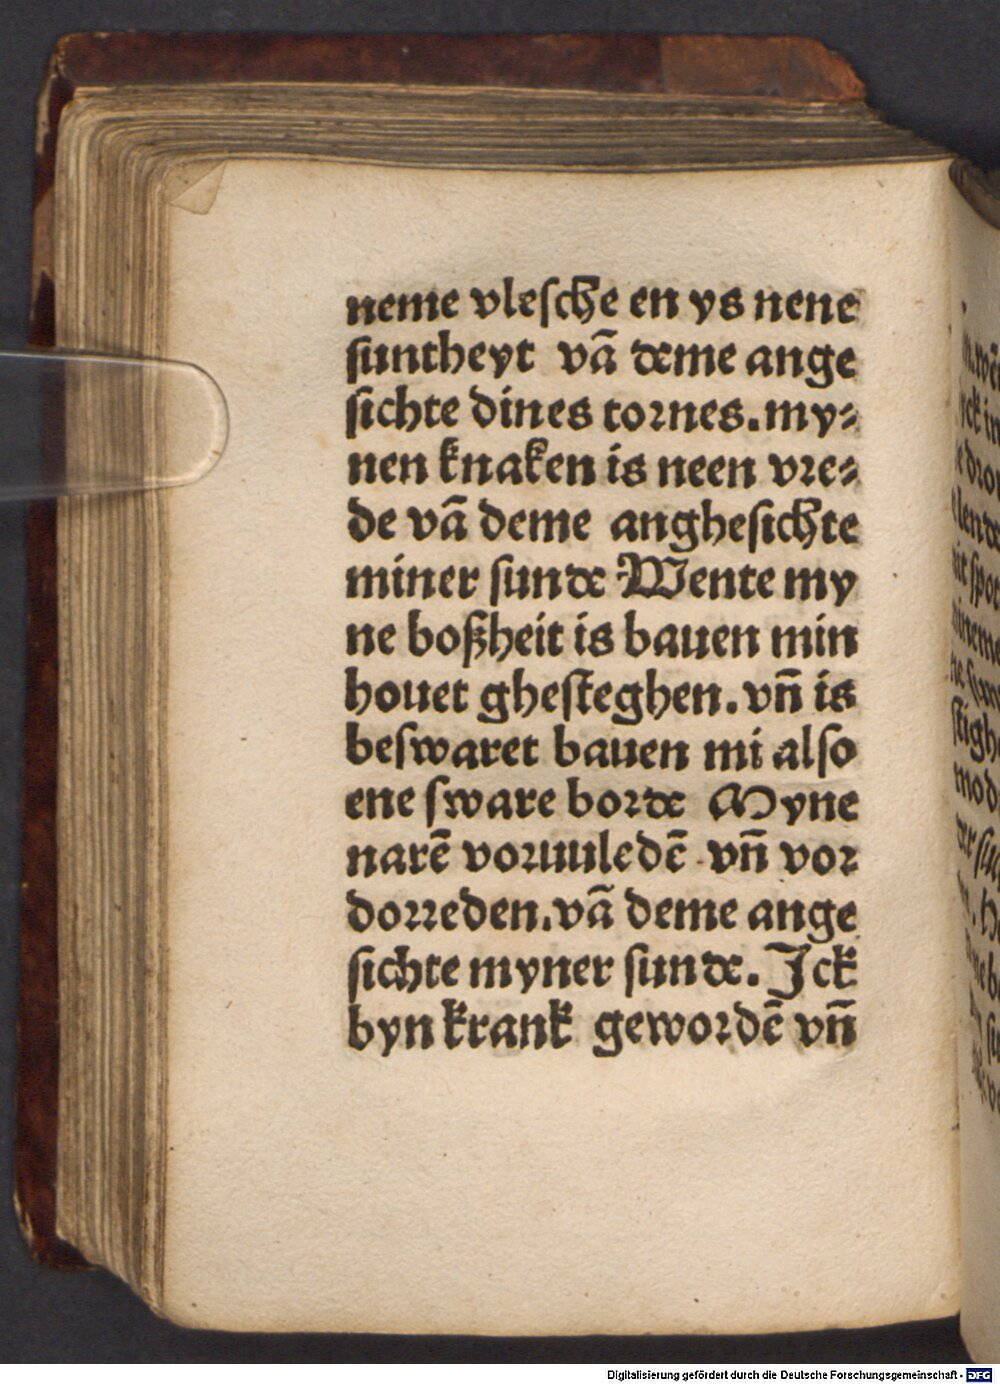 neme vlesche en ys nene
suntheyt vā deme ange
sichte dines tornes. my⸗
nen knaken is neen vre⸗
de vā deme anghesichte
miner sunde Wente my
ne boßheit is bauen min
houet ghesteghen. vn̄ is
beswaret bauen mi also
ene sware borde Myne
narē voruuledē vn̄ vor
dorreden. vā deme ange
sichte myner sunde. Ick
byn krank gewordē vn̄
Digitalisierung gefördert durch die Deutsche Forschungsgemeinschaft - DFG